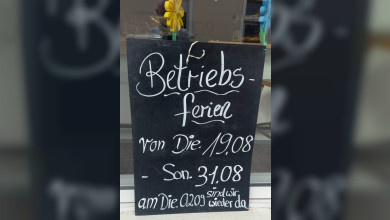 Betriebs-
ferien
von Die. 19.08
- Son. 31.08
am Die. 02.09 sind wir
wieder da